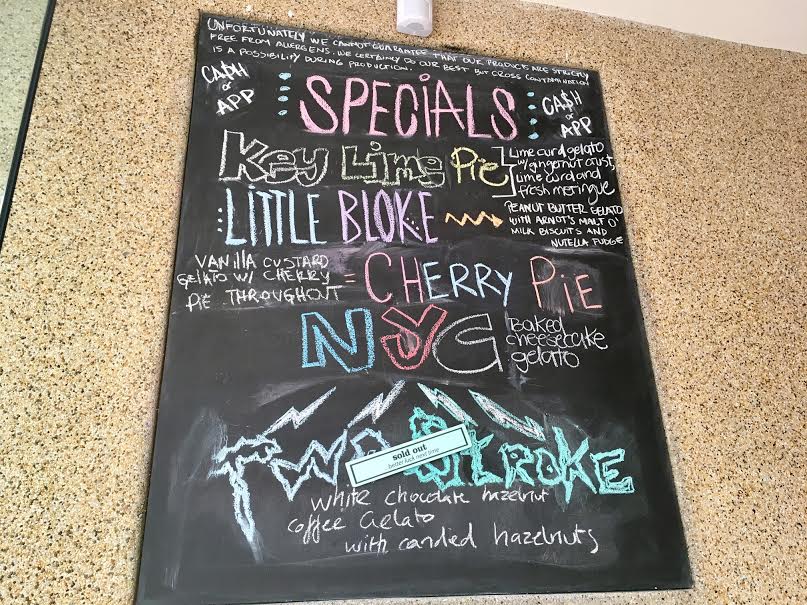 UNFORTUNATELY WE CANNOT GUARANTEE THAT OUR PRODUCTS ARE STRICTLY
FREE FROM ALLERGENS. WE CERTAINLY DO OUR BEST BUT CROSS CONTAMINATION
IS A POSSIBILITY DURING PRODUCTION.
CA$H
or
APP
SPECiALS
CA$H
or
APP
Key Lime Pie
Lime curd gelato
w/ gingernut crust,
lime curd and
fresh meringue
LiTTLE BLOKE
PEANUT BUTTER GELATO
WITH ARNOT'S MALT O'
MILK BISCUITS AND
NUTELLA FUDGE
VANillA CUSTARD
GELATO W/ CHERRY
PIE THROUGHOUT
= CHERRY PiE
NYC
Baked
cheesecake
gelato
TWO $TROKE
sold out
better luck next time
white chocolate hazelnut
coffee Gelato
with candied hazelnuts